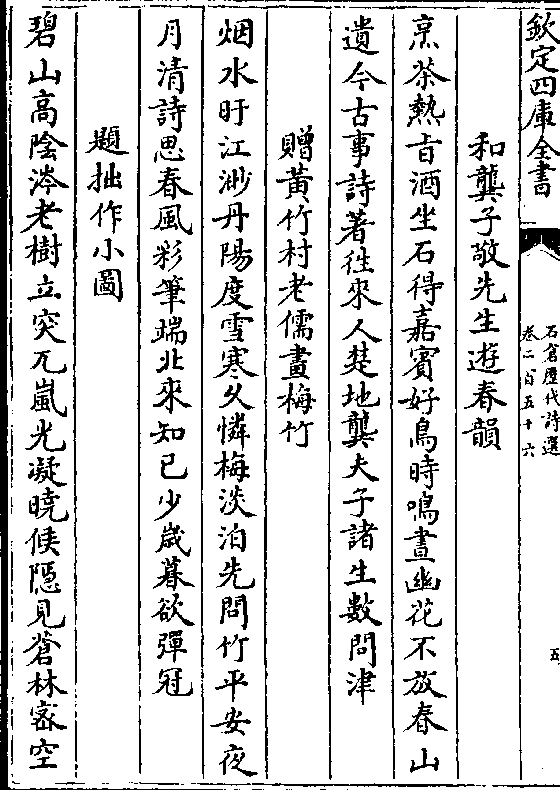 欽定四庫全書
石倉歷代詩選
卷二百五十六
五
和龔子敬先生遊春韻
烹茶熱旨酒坐石得嘉賓好鳥時鳴晝幽花不放春山
遺今古事詩著徃來人楚地龔夫子諸生數問津
贈黃竹村老儒畫梅竹
烟水盱江渺丹陽度雪寒久憐梅淡泊先問竹平安夜
月清詩思春風彩筆端北來知已少歲暮欲彈冠
題拙作小圖
碧山高陰涔老樹立突兀嵐光凝曉候隱見蒼林密空